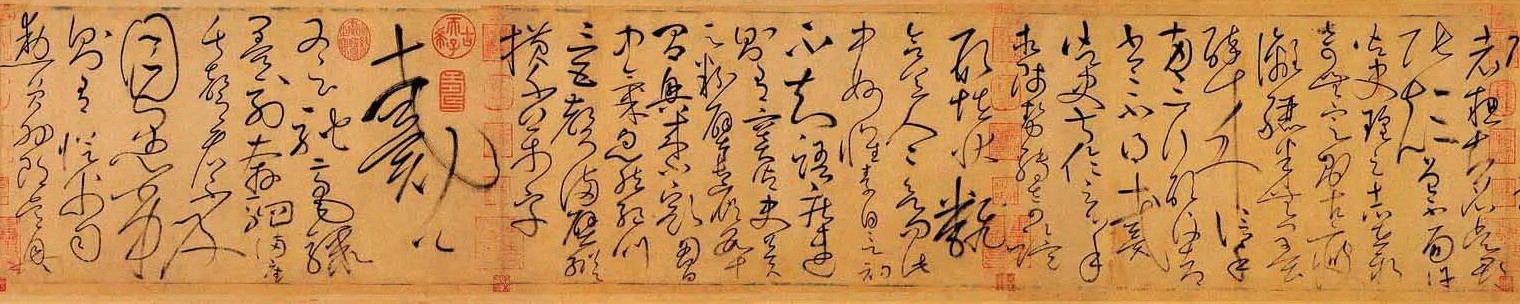 老粗知名吴郡
张颠曾不面许
御史瑶云志在新
奇无定则古瘦
漓骊半无墨
醉来信手
两三行醒后却
书书不得戴
御史叔伦云心手
相师势转奇诡
形怪状翻
合宜人人欲问此
中妙怀素自言初
不知语疾速
则有窦御史冀
云粉壁长廊数十
间兴来小豁胸
中气忽然绝叫
三五声满壁纵
横千万字
戴公
又云驰毫骤
墨列奔驷满座
失声看不及
目愚劣
则有从父司
勋员外郎吴兴